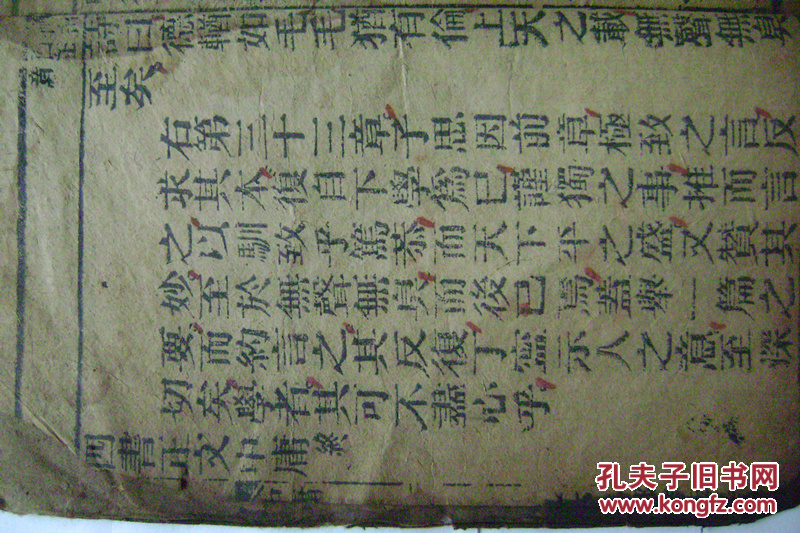 曰德輶如毛毛猶有倫上天之載無聲無臭
至矣
右第三十三章子思因前章極致之言反
求其本復自下學爲己謹獨之事推而言
之以馴致乎篤恭而天下平之盛又贊其
妙至於無聲無臭而後已焉蓋舉一篇之
要而約言之其反復丁寧示人之意至深
切矣學者其可不盡心乎
四書正文中庸終
孔夫子旧书网
WWW.KONGFZ.COM